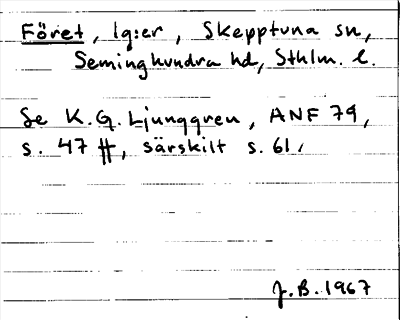 Föret, lg:er, Skepptuna sn,
Seminghundra hd, Sthlm. l.
Se K.G. Ljunggren, ANF 79,
s. 47 ff, särskilt s. 61.
J.B. 1967